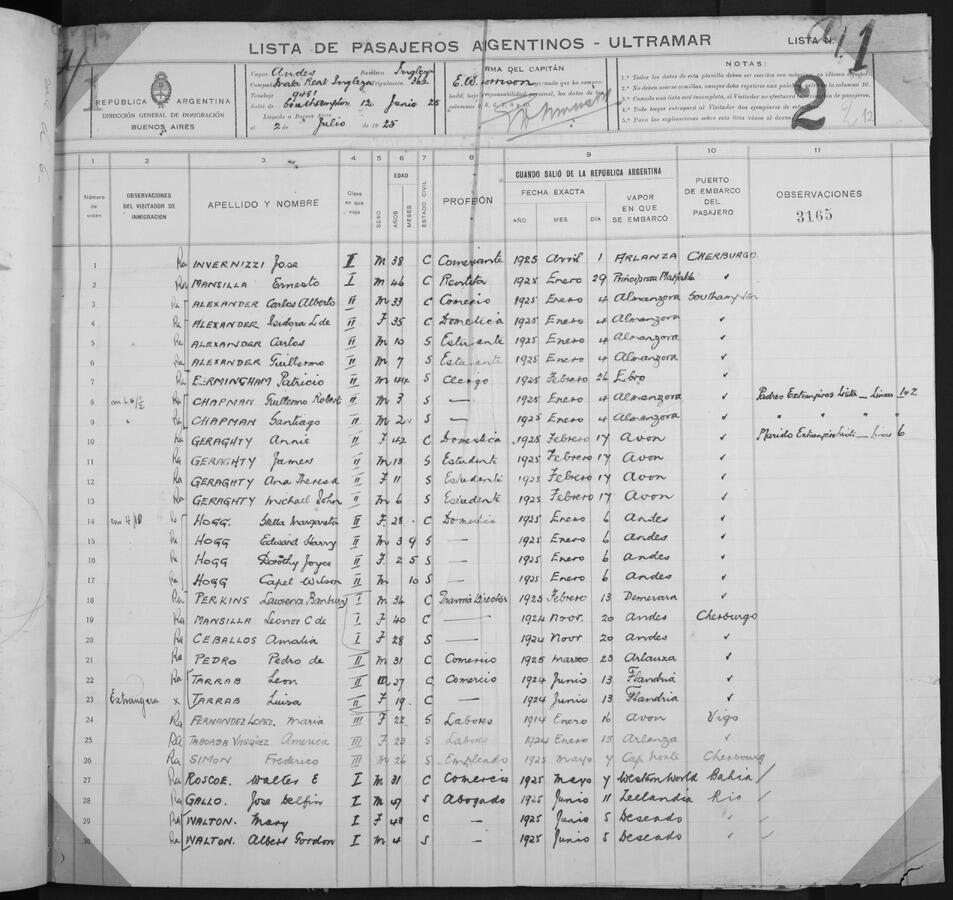 LISTA DE PASAJEROS ARGENTINOS - ULTRAMAR
LISTA N. 1
2
REPÚBLICA ARGENTINA
DIRECCIÓN GENERAL DE INMIGRACIÓN
BUENOS AIRES
Vapor Andes Bandera Inglesa
Mala Real Inglesa 362
Tonelaje 9481
Salió de Southampton 12 Junio 25
Llegado a Buenos Aires
el 2 de Julio de 1925
FIRMA DEL CAPITÁN
E. W. Morrison
NOTAS:
1.ª Todos los datos de esta planilla deben ser escritos con máquina, en idioma español.
2.ª No deben usarse comillas, aunque deba repetirse una palabra, salvo en la columna 10.
3.ª Cuando una lista esté incompleta, al Visitador
4.ª Todo buque entregará al Visitador dos ejemplares de
5.ª Para las explicaciones sobre esta lista véase al dorso
1 2 3 4 5 6 7 8 9 10 11
Número de orden
OBSERVACIONES DEL VISITADOR DE INMIGRACIÓN
APELLIDO Y NOMBRE
Clase en que viaja
SEXO
EDAD
AÑOS
MESES
ESTADO CIVIL
PROFESIÓN
CUANDO SALIÓ DE LA REPÚBLICA ARGENTINA
FECHA EXACTA
AÑO MES DÍA
VAPOR EN QUE SE EMBARCÓ
PUERTO DE EMBARCO DEL PASAJERO
OBSERVACIONES
3165
1 Ra INVERNIZZI Jose I M 38 C Comerciante 1925 Avril 1 ARLANZA CHERBURGO
2 Ra MANSILLA Ernesto I M 46 C Rentista 1925 Enero 29 Principessa Mafalda ✓
3 Ra ALEXANDER Carlos Alberto II M 33 C Comercio 1925 Enero 4 Almanzora Southampton
4 Ra ALEXANDER Isidora L de II F 35 C Domestica 1925 Enero 4 Almanzora ✓
5 Ra ALEXANDER Carlos II M 10 S Estudiante 1925 Enero 4 Almanzora ✓
6 Ra ALEXANDER Guillermo II M 7 S Estudiante 1925 Enero 4 Almanzora ✓
7 Ra BERMINGHAM Patricio II M 44 S Clerigo 1925 Febrero 26 Ebro ✓
8 Ra CHAPMAN Guillermo Robert II M 3 S — 1925 Enero 4 Almanzora ✓ Padres Extranjeros Lista — Lineas 1+2
9 " Ra CHAPMAN Santiago II M 2 S — 1925 Enero 4 Almanzora ✓ " " " "
10 Ra GERAGHTY Annie II F 42 C Domestica 1925 Febrero 17 Avon ✓ Marido Extranjero Lista — Linea 6
11 Ra GERAGHTY James II M 13 S Estudiante 1925 Febrero 17 Avon ✓
12 Ra GERAGHTY Ana Theresa II F 11 S Estudiante 1925 Febrero 17 Avon ✓
13 Ra GERAGHTY Michael John II M 6 S Estudiante 1925 Febrero 17 Avon ✓
14 Ra HOGG. Stella Margareta II F 28 C Domestica 1925 Enero 6 Andes ✓
15 Ra HOGG Edward Harry II M 3 9 S — 1925 Enero 6 Andes ✓
16 Ra HOGG Dorothy Joyce II F 2 5 S — 1925 Enero 6 Andes ✓
17 Ra HOGG Capel Wilson II M 10 S — 1925 Enero 6 Andes ✓
18 Ra PERKINS Laurence Banbury I M 34 C Tranvia Director 1925 Febrero 13 Demerara ✓
19 Ra MANSILLA Leonor C de I F 40 C — 1924 Novr. 20 Andes Cherburgo
20 Ra CEBALLOS Amalia I F 28 S 1924 Novr 20 Andes ✓
21 Ra PEDRO Pedro de II M 31 C Comercio 1925 Marzo 23 Arlanza ✓
22 Ra TARRAB Leon II M 27 C Comercio 1924 Junio 13 Flandria ✓
23 Extrangera x TARRAB Luisa II F 19 C — 1924 Junio 13 Flandria ✓
24 Ra FERNANDEZ LOPEZ. Maria III F 22 S Labores 1914 Enero 16 Avon Vigo
25 Ra TABOADA VASQUEZ America III F 23 S Labores 1924 Enero 15 Arlanza ✓
26 Ra SIMON Frederico III M 26 S Empleado 1925 Mayo 4 Cap Norte Cherbourg
27 Ra ROSCOE. Walter E I M 31 C Comercio 1925 Mayo 4 Western World Bahia /
28 Ra GALLO. Jose Delfin I M 47 S Abogado 1925 Junio 11 Zeelandia Rio /
29 Ra WALTON. Mary I F 43 C — 1925 Junio 5 Deseado ✓ /
30 Ra WALTON. Albert Gordon I M 4 S — 1925 Junio 5 Deseado ✓ /